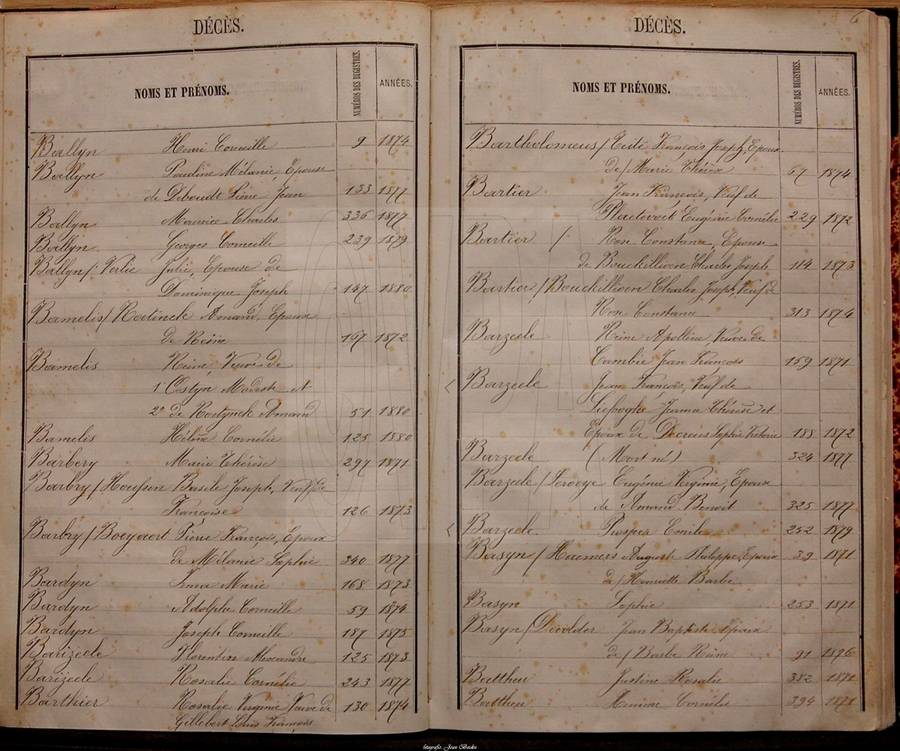 DÉCÈS.
NOMS ET PRÉNOMS. NUMÉROS DES REGISTRES. ANNÉES.
Ballyn Henri Corneille 9 1874
Ballyn Pauline Mélanie, Epouse
de Deboudt Jean 133 1877
Ballyn Maurice Charles 336 1877
Ballyn Georges Corneille 239 1879
Ballyn / Julie, Epouse de
Dominique Joseph 147 1880
Bamelis / Amand, Epoux
de Reine 167 1872
Bamelis Reine Veuve de
1° Modeste et
2° de Amand 51 1880
Bamelis Hélène Cornélie 125 1880
Barbery Marie Thérèse 297 1871
Barbry / Basile Joseph, Veuf de
Françoise 126 1873
Barbry / Boeyaert Pierre François, Epoux
de Mélanie Sophie 340 1877
Bardyn Anna Marie 168 1873
Bardyn Adolphe Corneille 59 1874
Bardyn Joseph Corneille 187 1875
Barizeele Florentin Alexandre 125 1873
Barizeele Rosalie Cornélie 243 1877
Barthier Rosalie Virginie Veuve de 130 1874
Gillebert Louis François
6
DÉCÈS.
NOMS ET PRÉNOMS. NUMÉROS DES REGISTRES. ANNÉES.
Bartholomeus / François Joseph, Epoux
de / Marie Thérèse 67 1874
Bartier Jean François, Veuf de
Eugénie Cornélie 229 1872
Bartier / Rose Constance, Epouse
de Bouchillion Charles Joseph 114 1873
Bartier / Bouchillion Charles Joseph, Veuf de
Rose Constance 313 1874
Barzeele Reine Apolline, Veuve de
Cambie Jean François 159 1871
Barzeele Jean François, Veuf de
Thérèse et
Epoux de Sophie Victoire 188 1872
Barzeele (Mort né) 324 1877
Barzeele / Eugénie Virginie, Epouse
de Amand Benoit 325 1877
Barzeele Prosper Emile 252 1879
Basyn / Haemers Auguste Philippe, Epoux 39 1871
de / Henriette Barbe
Basyn Sophie 253 1871
Basyn / Jean Baptiste Epoux
de / Barbe Reine 91 1876
Battheu Justine Rosalie 382 1871
Battheu Cornélie 394 1871
fotografie Jean Beckx